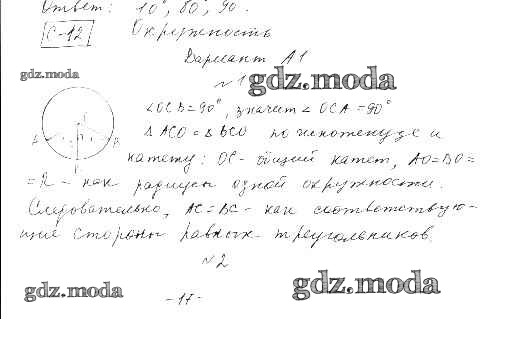 Ответ: 10°, 80°, 90°.
С-12 Окружность
Вариант А1
gdz.moda
№1 gdz.moda
∠OCB = 90°, значит ∠OCA = 90°
Δ ACO = Δ BCO по гипотенузе и
катету: OC - общий катет, AO = BO =
= R - как радиусы одной окружности.
Следовательно, AC = BC - как соответствую-
щие стороны равных треугольников.
№2
gdz.moda -17- gdz.moda